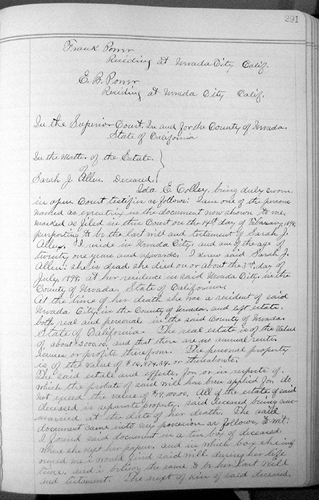 291
Frank Power
Residing at Nevada City, Calif.
E. B. Power
Residing at Nevada City Calif.
In the Superior Court, In and for the County of Nevada
State of California
In the Matter of the Estate
of
Sarah J. Allen Deceased
Ida E. Colley, being duly sworn
in open Court testifies as follows: I am one of the persons
named as executrix in the document now shown to me,
marked as filed in this Court on the day of
purporting to be the last will and testament of Sarah J.
Allen. I reside in Nevada City and am of the age of
twenty one years and upwards, I knew said Sarah J.
Allen. She is dead she died on or about the day of
July 189 at her residence in said Nevada City, in the
County of Nevada, State of California.
At the time of her death she was a resident of said
Nevada City, in the County of Nevada and left estate
both real and personal in the said County of Nevada
State of California. The real estate is of the value
of about and that there are no annual rents,
issues or profits therefrom. The personal property
is of the value of or thereabouts.
The said estate and effects, for or in respect of
which the probate of said will has been applied for do
not exceed the value of All of the estate of said
deceased is separate property, said deceased being
at the date of her death. The said
document came into our possession as follows, to wit:
I found said document in a tin box of deceased
where she kept her papers and in which box she
me I would find said will during her life
time, and I believe the same to be her last will
and testament. The next of kin of said deceased,